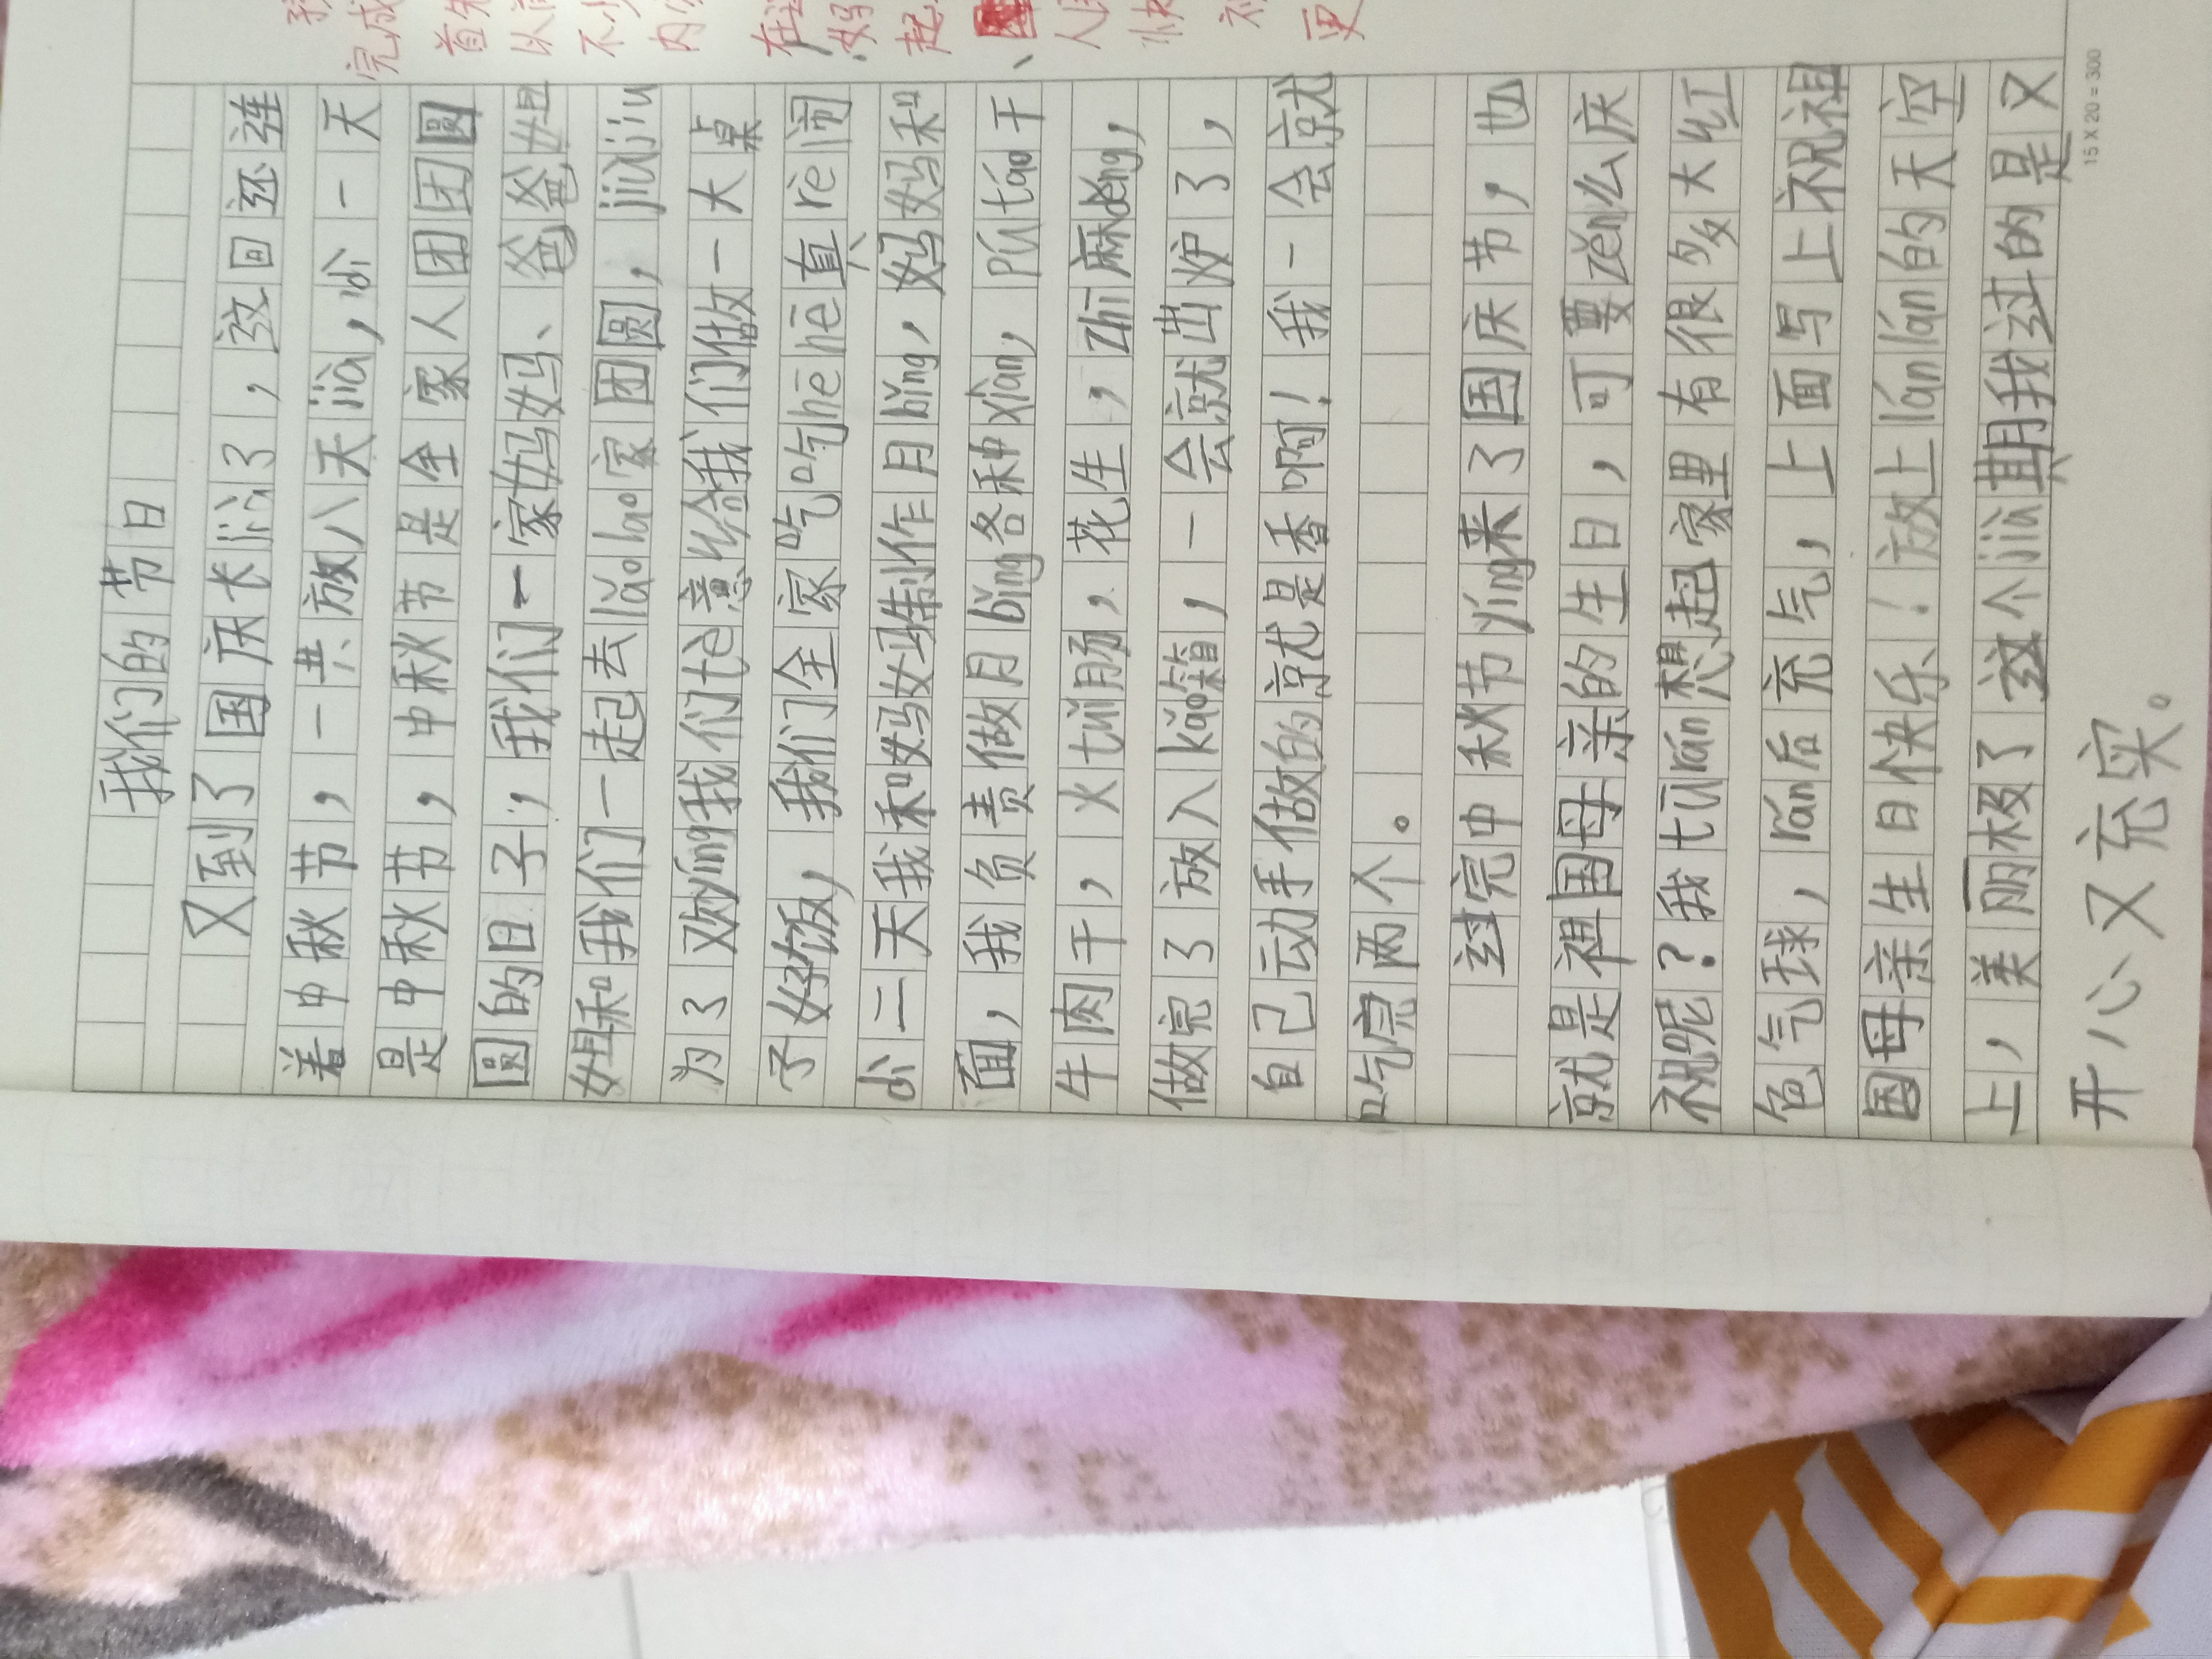 我们的节日
又到了国庆长jià了，这回还连
着中秋节，一共放八天jià，尐一天
是中秋节，中秋节是全家人团团圆
圆的日子，我们一家妈妈、爸爸姐
姐和我们一起去lǎolao家团圆，jiùjiu
为了欢yíng我们tè意给我们做一大桌
子好饭，我们全家吃吃hēhē直rè闹
尐二天我和妈妈制作月bǐng，妈妈和
面，我负责做月bǐng各种xiàn，pútáo干、
牛肉干，火tuǐ肠，花生，zhī麻děng，
做完了放入kǎo箱，一会就出炉了，
自己动手做的就是香啊！我一会就
吃完两个。
过完中秋节yíng来了国庆节，也
就是祖国母亲的生日，可要zěn么庆
祝呢？我tūrán想起家里有很多大红
色气球，rán后充气，上面写上祝祖
国母亲生日快乐！放上lánlán的天空
上，美丽极了这个jià期我过的是又
开心又充实。
15 X 20 = 300
完成
首先
以前
不少
内容
在这
妈
起
人民
快
更